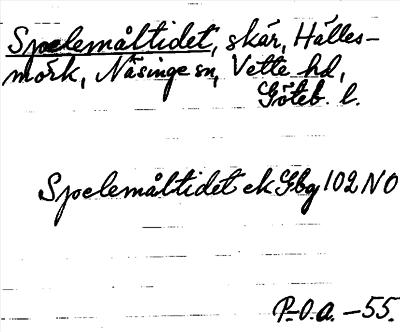 Spelemåltidet, skär, Hälles-
mörk, Näsinge sn, Vette hd,
Göteb. l.
Spelemåltidet ek Gbg 102 NO
P.-O.a. -55.